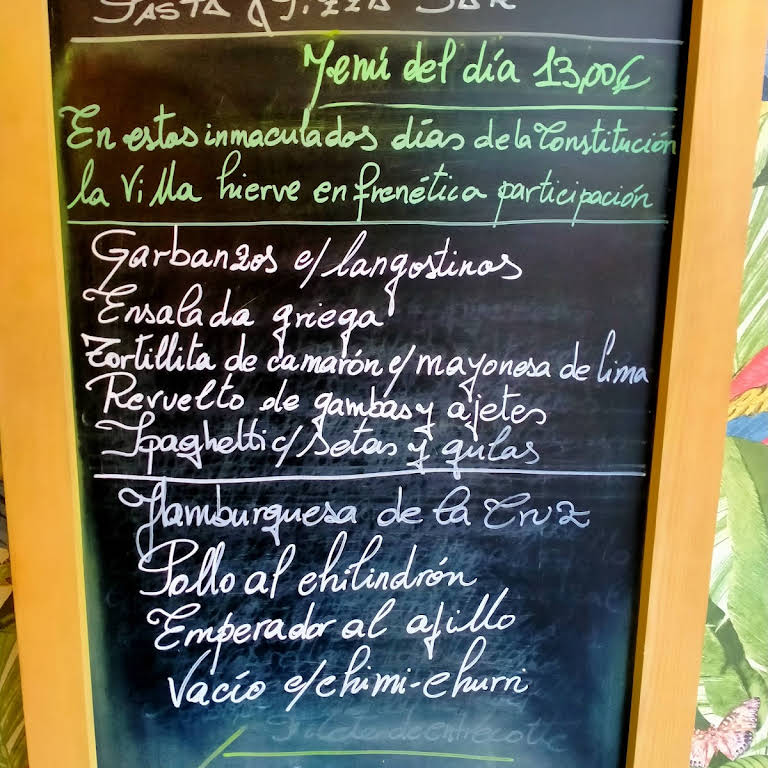 PASTA & PIZZA BAR
Menú del día 13,00€
En estos inmaculados días de la Constitución
la Villa hierve en frenética participación
Garbanzos c/ langostinos
Ensalada griega
Tortillita de camarón c/ mayonesa de lima
Revuelto de gambas y ajetes
Spaghetti c/ setas y gulas
Hamburguesa de la Cruz
Pollo al chilindrón
Emperador al ajillo
Vacío c/ chimi-churri
de entrecotte